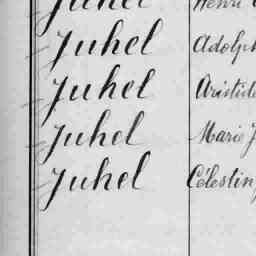 Juhel Henri
Juhel Adolph
Juhel Aristide
Juhel Marie J
Juhel Célestin